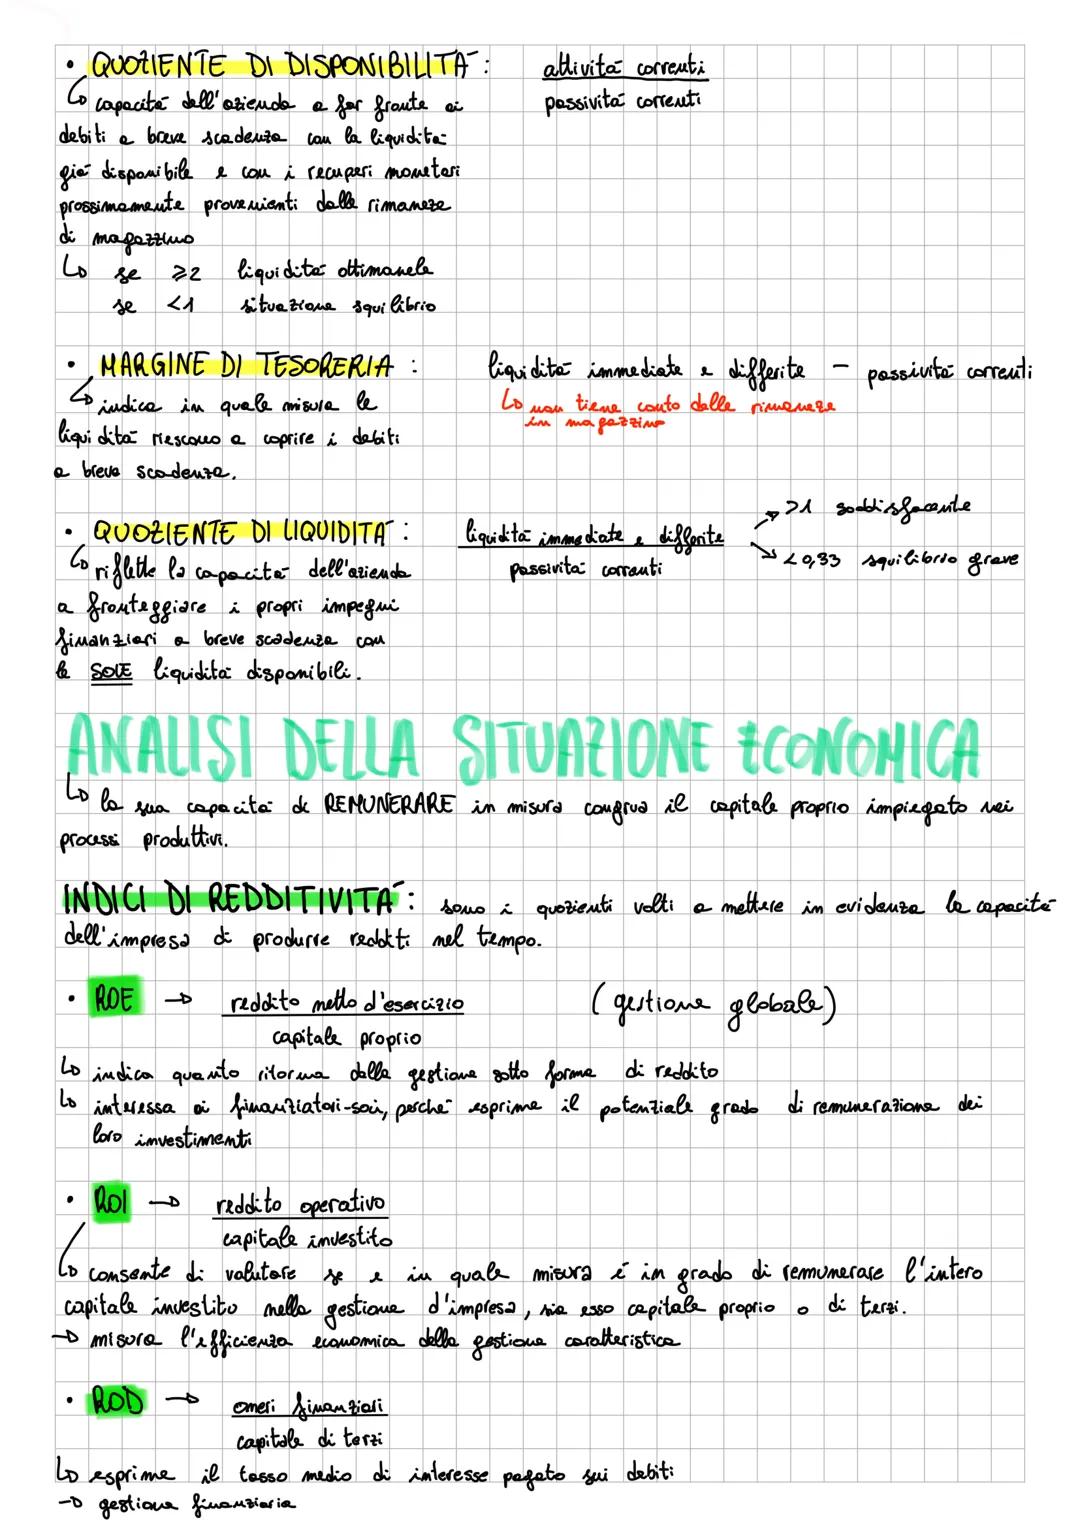 • QUOZIENTE DI DISPONIBILITÀ : attività correnti
passività correnti
↳ capacità dell'azienda a far fronte ai
debiti a breve scadenza con la liquidità
già disponibile e con i recuperi monetari
prossimamente provenienti dalle rimaneze
di magazzino
↳ se ⩾2 liquidità ottimanele
se <1 situazione squilibrio
• MARGINE DI TESORERIA : liquidità immediate e differite - passività correnti
↳ non tiene conto delle rimaneze
in magazzino
↳ indica in quale misura le
liquidità riescono a coprire i debiti
a breve scadenza.
• QUOZIENTE DI LIQUIDITÀ : liquidità immediate e differite
passività correnti
→ >1 soddisfacente
→ <0,33 squilibrio grave
↳ riflette la capacità dell'azienda
a fronteggiare i propri impegni
finanziari a breve scadenza con
le SOLE liquidità disponibili.
ANALISI DELLA SITUAZIONE ECONOMICA
↳ la sua capacità di REMUNERARE in misura congrua il capitale proprio impiegato nei
processi produttivi.
INDICI DI REDDITIVITÀ : sono i quozienti volti a mettere in evidenza la capacità
dell'impresa di produrre redditi nel tempo.
• ROE → reddito netto d'esercizio (gestione globale)
capitale proprio
↳ indica quanto ritorna dalla gestione sotto forma di reddito
↳ interessa ai finanziatori-soci, perché esprime il potenziale grado di remunerazione dei
loro investimenti
• ROI → reddito operativo
capitale investito
↳ consente di valutare se e in quale misura è in grado di remunerare l'intero
capitale investito nella gestione d'impresa, sia esso capitale proprio o di terzi.
→ misura l'efficienza economica della gestione caratteristica
• ROD → oneri finanziari
capitale di terzi
↳ esprime il tasso medio di interesse pagato sui debiti
→ gestione finanziaria